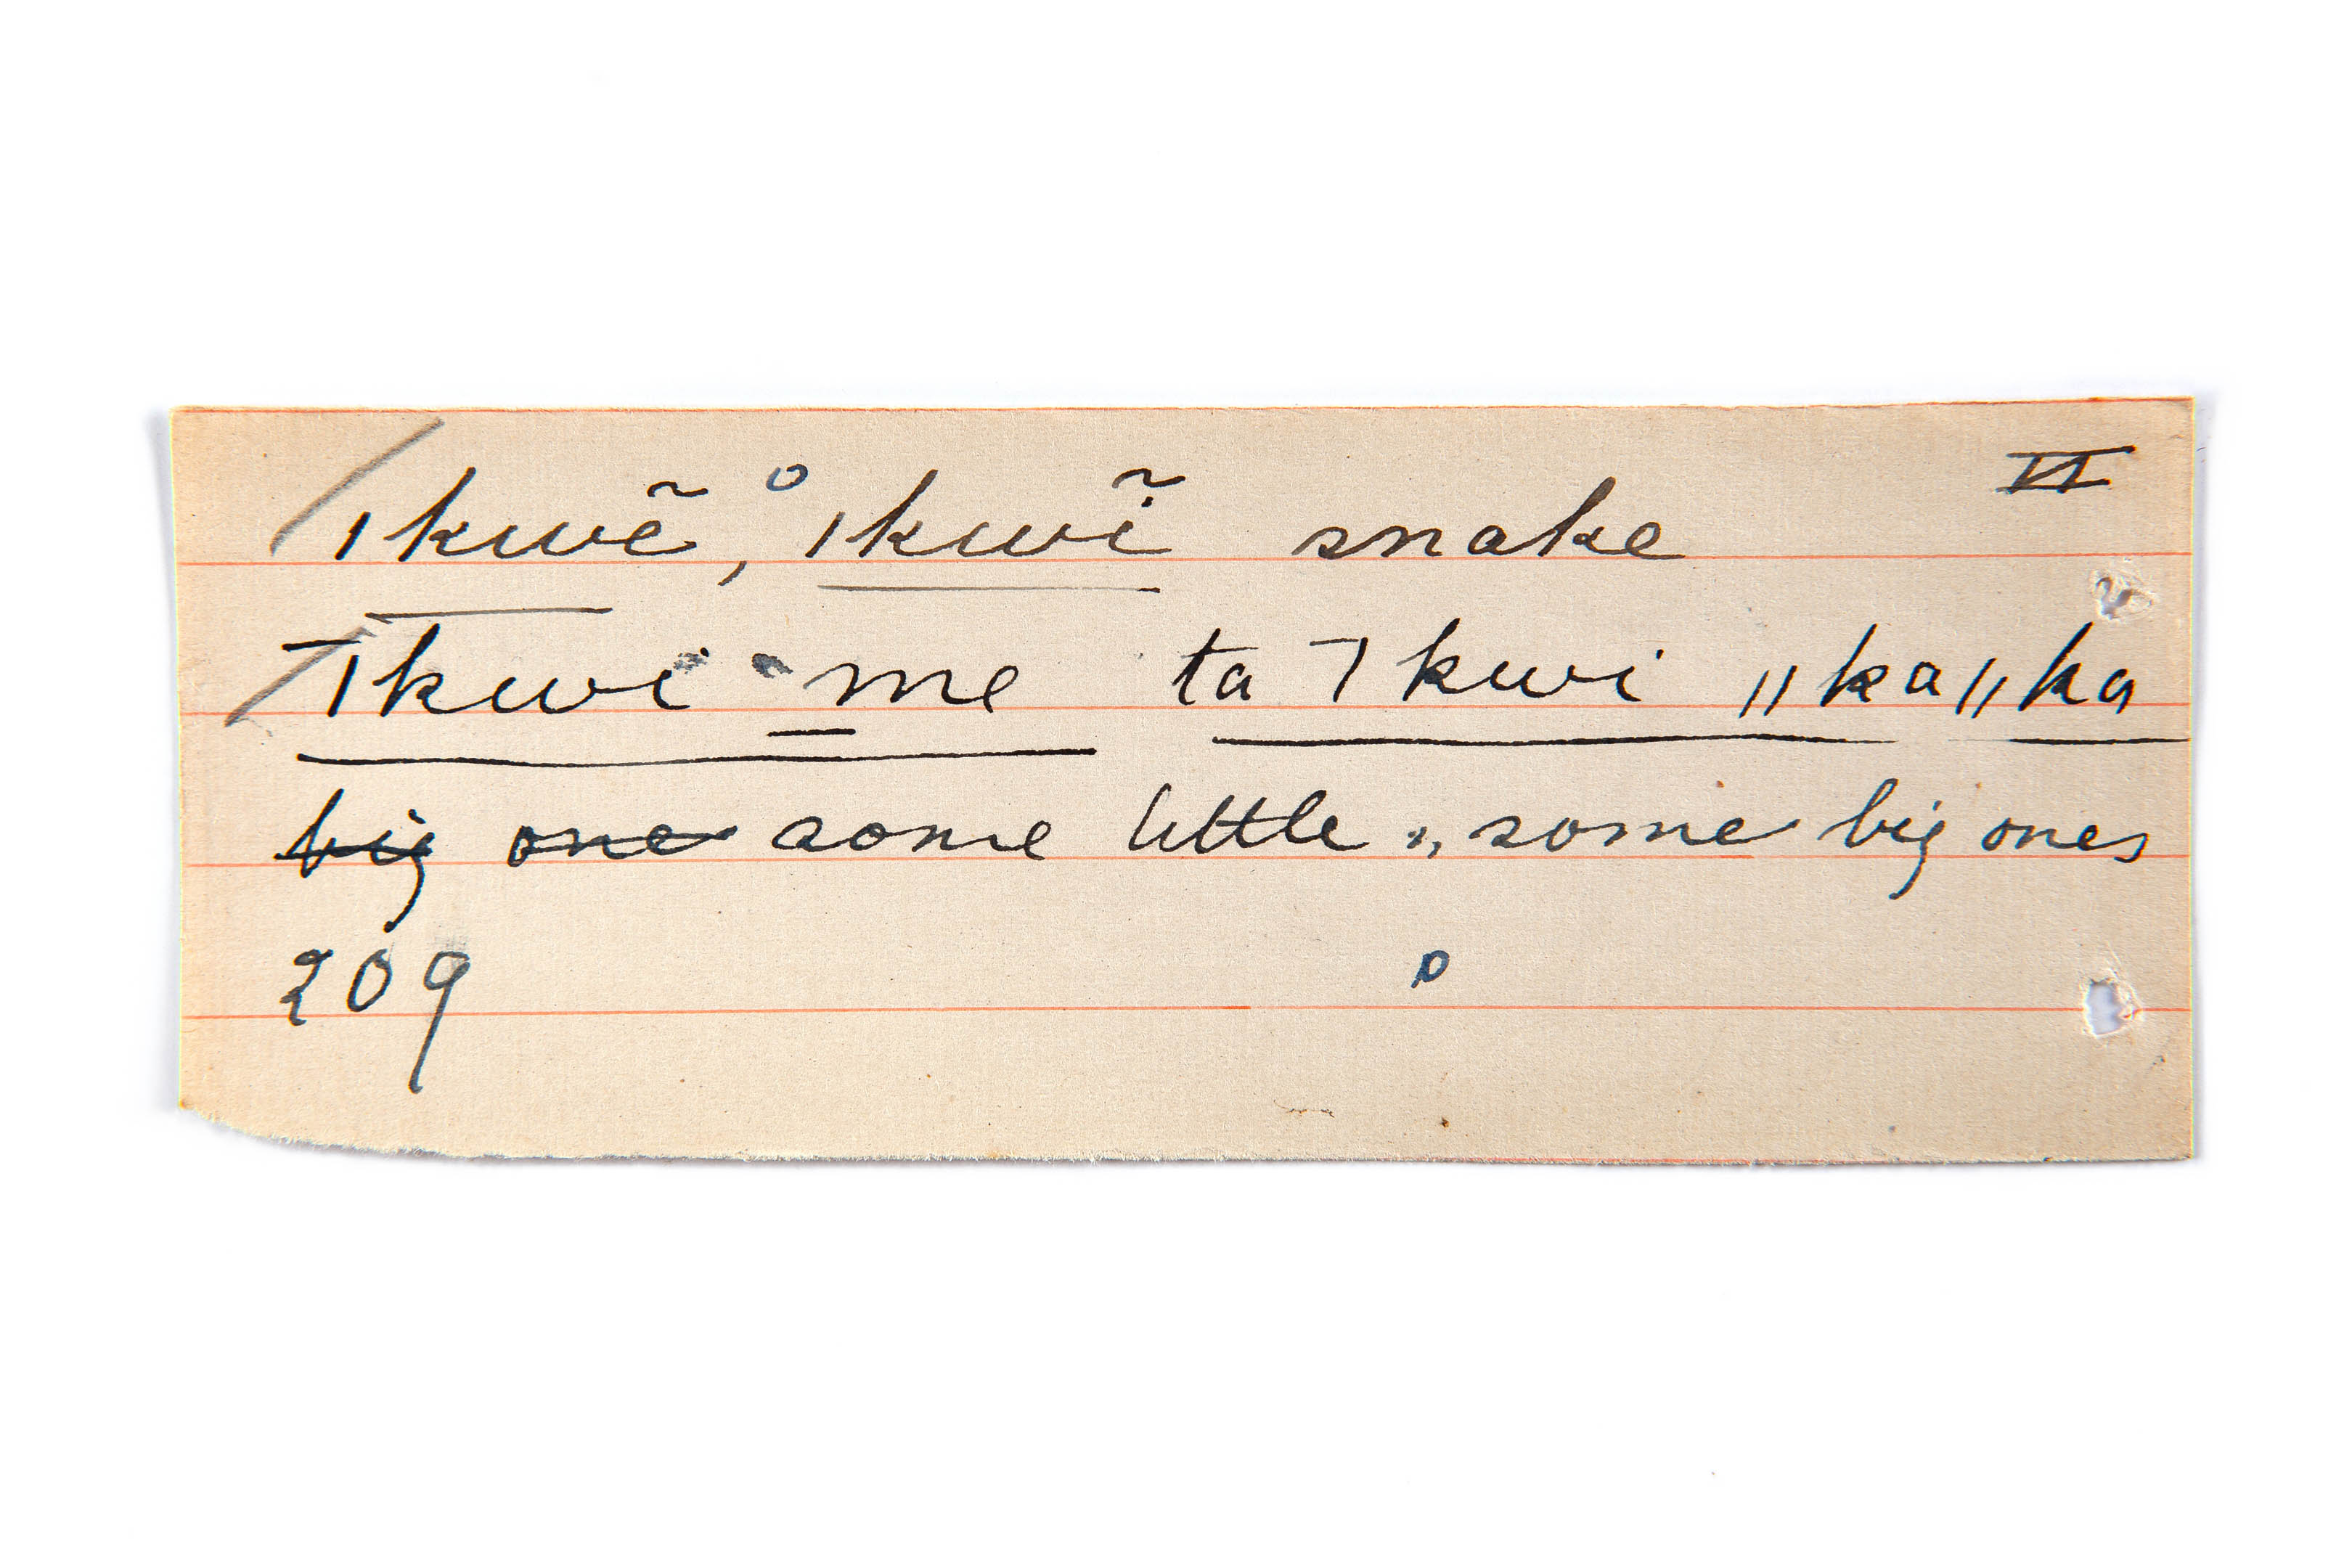 VI
ǀkwẽ, ǀkwĩ snake
ˉǀkwi me ta ˉǀkwi ǁkaǁka
~~big one~~ some little, some big ones
209